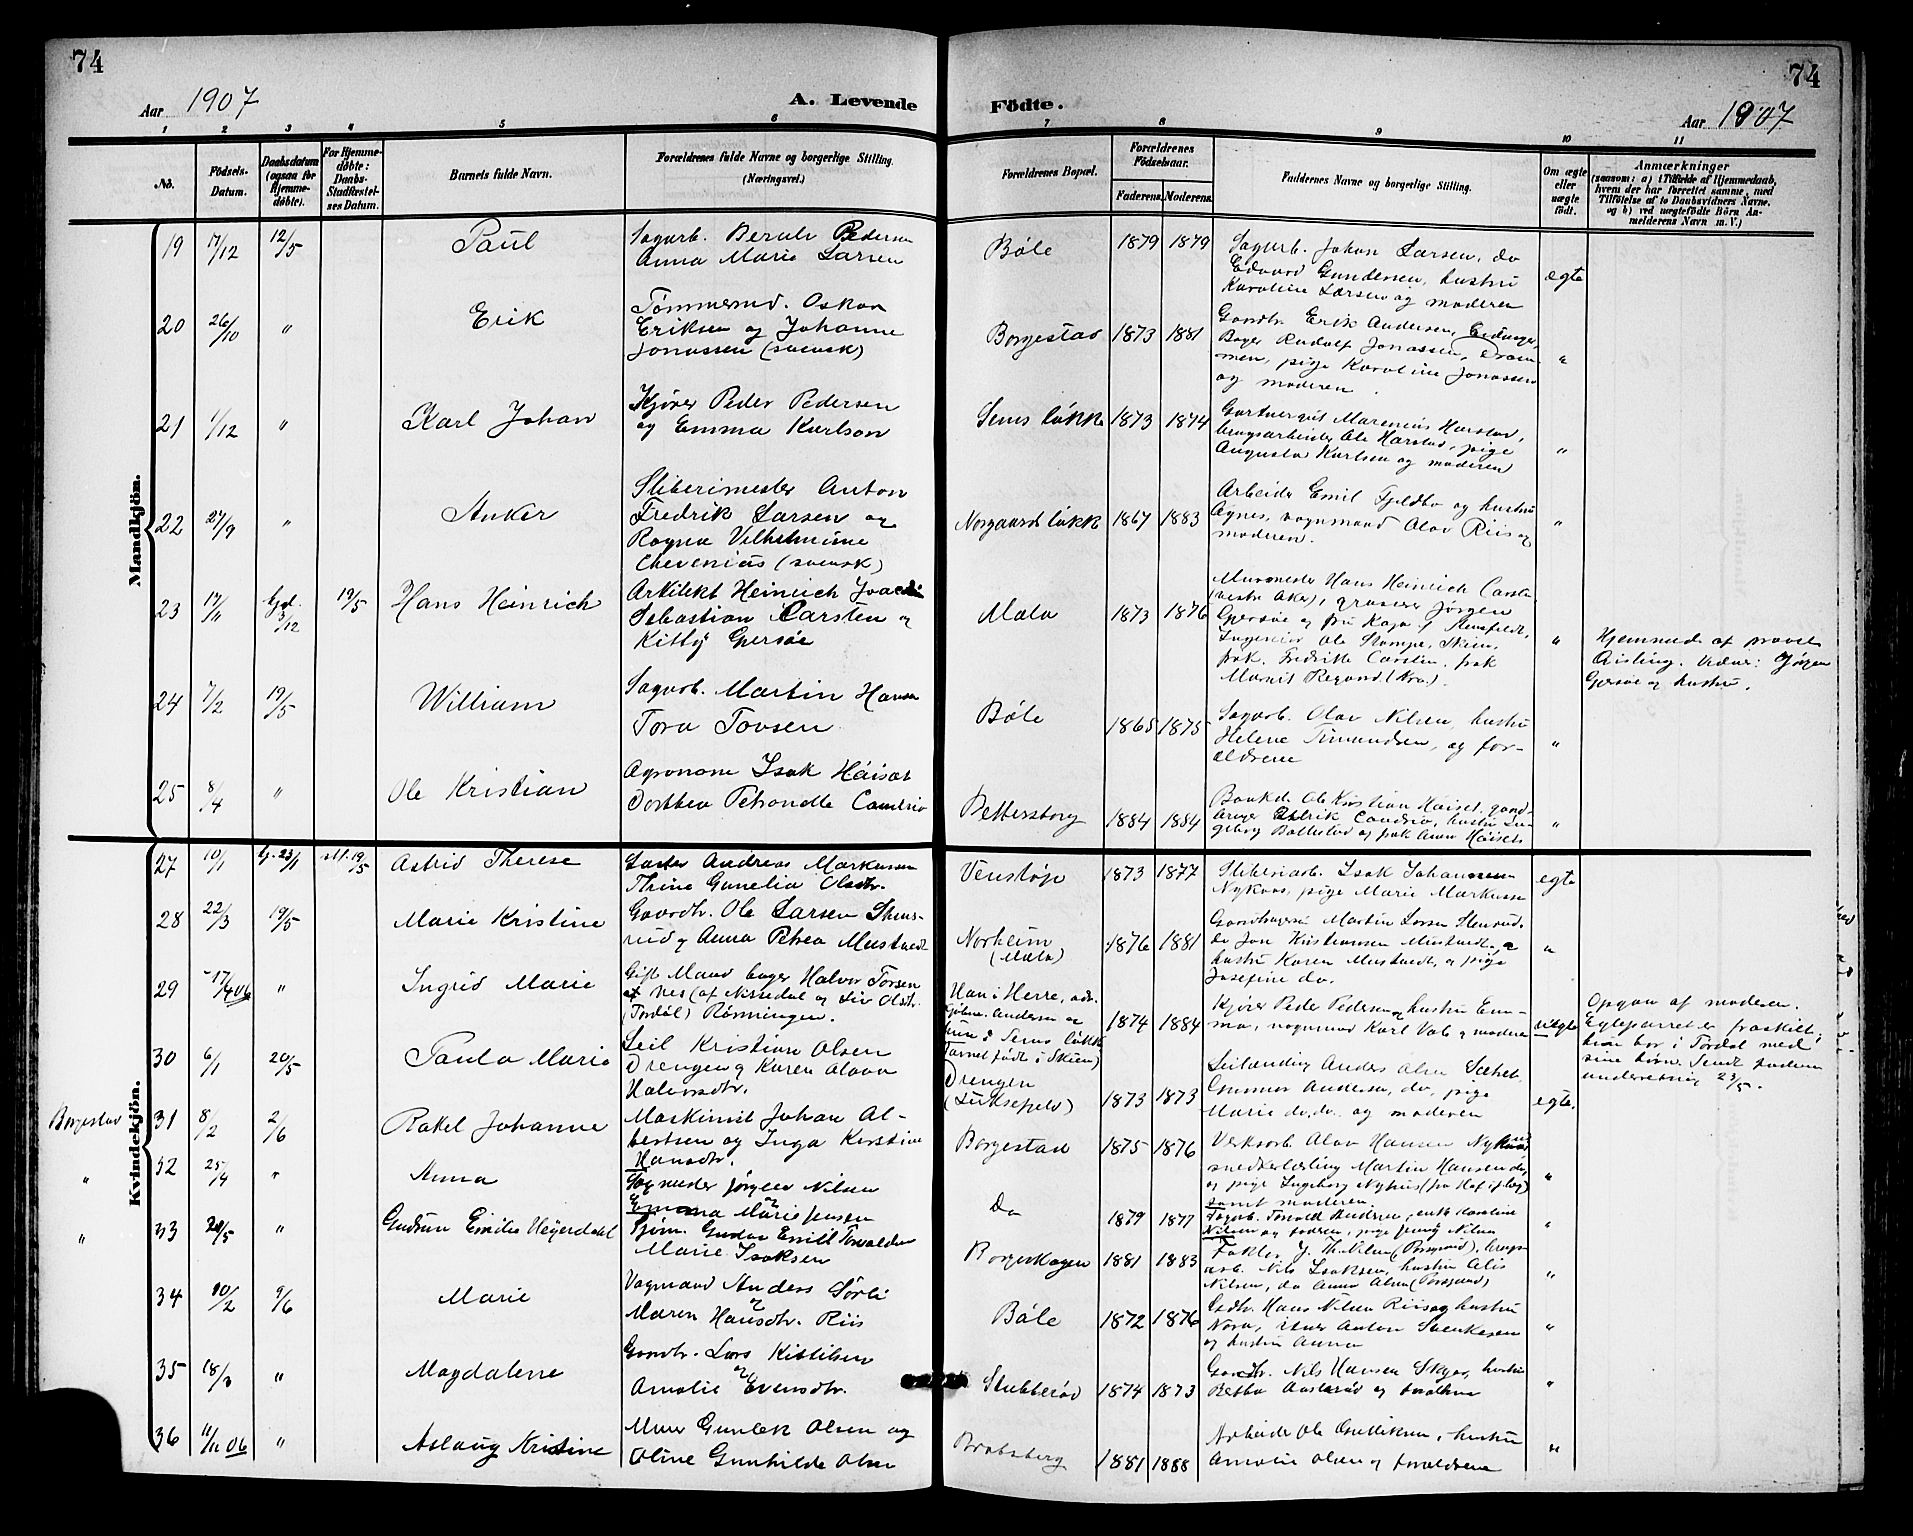 74
74
Aar 1907
A. Levende
Födte.
Aar 1907
1 2 3 4 5 6 7 8 9 10 11
No.
Födsels-
Datum.
Daabsdatum
(ogsaa for
Hjemme-
döbte).
For Hjemme-
döbte:
Daabs-
Stadfæstel-
ses Datum.
Barnets fulde Navn.
Forældrenes fulde Navne og borgerlige Stilling.
(Næringsvei.)
Forældrenes Bopæl.
Forældrenes
Födselsaar.
Faderens. Moderens.
Faddernes Navne og borgerlige Stilling.
Om ægte
eller
uægte
födt.
Anmærkninger
(saasom: a) i Tilfælde af Hjemmedaab,
hvem der har forrettet samme, med
Tilföielse af to Daabsvidners Navne.
og b) ved uægtefödte Börn An-
melderens Navn m. V.)
Mandkjön.
19 17/12 12/5 Paul
Sagarb. Bernh. Pedersen
Anna Marie Larsen
Bøle 1879 1879
Sagarb. Johan Larsen, do
Edvard Gundersen, hustru
Karoline Larsen og moderen
ægte
20 26/10 " Erik
Tømmermd. Oskar
Eriksen og Johanne
Jonassen (svensk)
Borgestad 1873 1881
Gaardbr. Erik Andersen, Eidanger,
Bager Rudolf Jonassen, Dram-
men, pige Karoline Jonassen
og moderen
"
21 1/12 " Karl Johan
Kjører Peder Pedersen
og Emma Karlson
Sems løkke 1873 1874
Gartnergut Marenius Harstad,
brugsarbeider Ole Harstad, pige
Augusta Karlsen og moderen
"
22 27/9 " Anker
Sliberimester Anton
Fredrik Larsen og
Ragna Vilhelmine
Chevenius (svensk)
Norgaards løkk 1867 1883
Arbeider Emil Fjeldbo og hustru
Agnes, vognmand Olav Riis og
moderen.
"
23 17/11 Hjd. 3/12 19/5 Hans Heinrich
Arkitekt Heinrich Joachim
Sebastian Carsten og
Kitty Gjersøe
Mæla 1873 1876
Murmester Hans Heinrich Carsten
(vestre Aker), grosserer Jørgen
Gjersøe og fru Kaja f. Stensfeldt,
Ingeniør Ole Stampe, Skien,
frøk. Fredrikke Carsten, frøk
"
Hjemmed. af provst
Aisling. Vidner: Jørgen
Gjersøe og hustru.
24 7/2 19/5 William
Sagarb. Martin Hansen
Tora Tovsen
Bøle 1865 1875
Sagarb. Olav Nilsen, hustru
Helene Simundsen, og for-
ældrene
"
25 8/4 " Ole Kristian
Agronom Isak Høiset
Dorthea Petronelle
Bettersborg 1884 1884
Ole Kristian Høiset, gaard-
"
Kvindekjön.
27 10/1 hj. 23/1 st. 19/5 Astrid Therese
Laster Andreas Markussen
Trine Gunelia Olsdtr.
Venstøp 1873 1877
Sliberiarb. Isak Johannesen
Nykaas, pige Marie Markussen
ægte
28 22/3 19/5 Marie Kristine
Gaardbr. Ole Larsen Stens-
rud og Anna Petrea Mustvedt
Norheim
(Mæla)
1876 1881
Gaardbruger Martin Larsen Stensrud,
do Jon Kristiansen Mustvedt og
hustru Karen Mustvedt, og pige
Josefine do.
"
29 17/4 06 " Ingrid Marie
Gift Mand bager Halvor Torsen
Nes (af Nissedal og Liv Olsdtr.
(Tørdal) Rønningen.
Han i Herre, adr.
Kjøbm. Andersen og
hun i Sems løkk
(Barnet født i Skien)
1874 1884
Kjører Peder Pedersen og hustru Em-
ma, vognmand Karl Vab og moderen
uægte
Opgav af moderen.
Egteparret er fraskilt;
hun bor i Tørdal med
sine børn. Sendt faderen
underretning 23/5.
30 6/1 20/5 Paula Marie
Seil Kristian Olsen
Drengen og Karen Alava
Halvorsdtr.
Drengen
(Luksefjeld)
1873 1873
Anders Olsen
Gunnar Andersen, do, pige
Marie do, do. og moderen
ægte.
Borgestad 31 8/2 2/6 Rakel Johanne
Maskinist Johan Al-
bertsen og Inga Kirstine
Hansdtr.
Borgestad 1875 1876
Verksarb. Olav Hansen Nyhus
snedkerlærling Martin Hansen do,
og pige Ingeborg Nyhus
samt moderen
"
" 32 25/4 " Anna
Sagmester Jørgen Nilsen
Emma Marie Jensen
Do 1879 1877
"
" 33 20/5 " Gudrun Emilie Heyerdahl
Sjøm. Gustav Emil Torvaldsen
Marie Isaksen
Borgeskogen 1881 1883
Faktor J. Th. Nilsen (Porsgrund), brugs-
arb. Nils Isaksen, hustru Alis
Nilsen, do Anna Olsen (Porsgrund)
"
34 10/2 9/6 Marie
Vogmand Anders Sørli
Maren Hansdtr. Riis
Bøle 1872 1876
Gbr. Hans Nilsen Riis og hustru
Nora, Anton Svenkesen
og hustru Anna
"
35 18/3 " Magdalene
Gaardbr. Lars Kittilsen
Amalie Evensdtr.
Stubberød 1874 1873
Gaardbr. Nils Hansen, hustru
"
36 11/11 06 " Aslaug Kristine
Murer Gunlek Olsen og
Oline Gunhilde Olsen
Bratsberg 1881 1888
Arbeider Ole, hustru
Amalie Olsen og forældrene
"